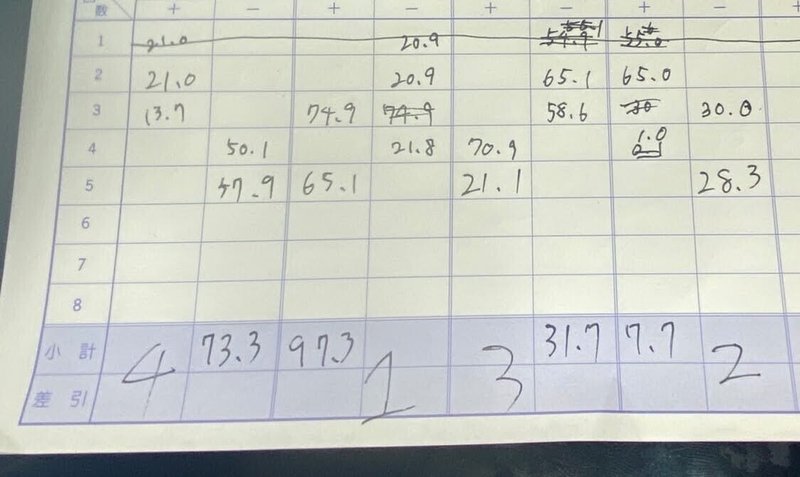 数 + − + − + − +
1 21.0 20.9
2 21.0 20.9 65.1 65.0
3 13.7 74.9 74.9 58.6 30 30.0
4 50.1 21.8 70.9 1.0
5 57.9 65.1 21.1 28.3
6
7
8
小計 73.3 97.3 31.7 7.7
差引 4 1 3 2